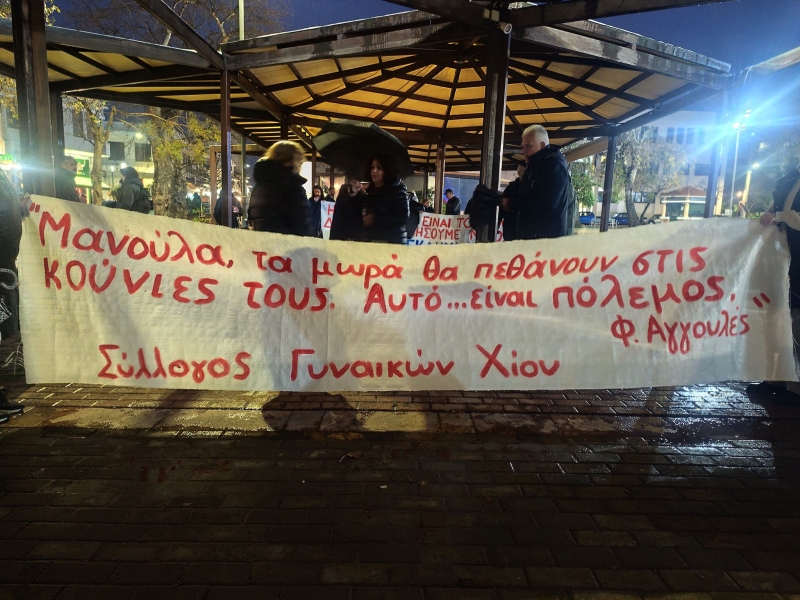 "Μανούλα, τα μωρά θα πεθάνουν στις
κούνιες τους. Αυτό...είναι πόλεμος."
Φ. Αγγουλές
Σύλλογος Γυναικών Χίου
ΕΙΝΑΙ ΤΟ